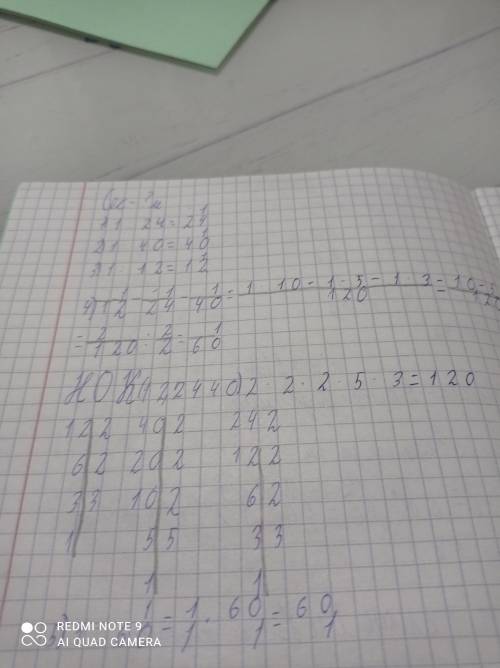 1) 1 : 24 = 1/24
2) 1 : 40 = 1/40
3) 1 : 12 = 1/12
4) 1/12 - 1/24 - 1/40 = (1 · 10 - 1 · 5 - 1 · 3)/120 = (10 - 5
= 2/120 : 2/2 = 1/60
НОК(12 24 40) 2 · 2 · 2 · 5 · 3 = 120
12 | 2 40 | 2 24 | 2
6 | 2 20 | 2 12 | 2
3 | 3 10 | 2 6 | 2
1 5 | 5 3 | 3
1 1
= 1/1 · 60/1 = 60/1
REDMI NOTE 9
AI QUAD CAMERA